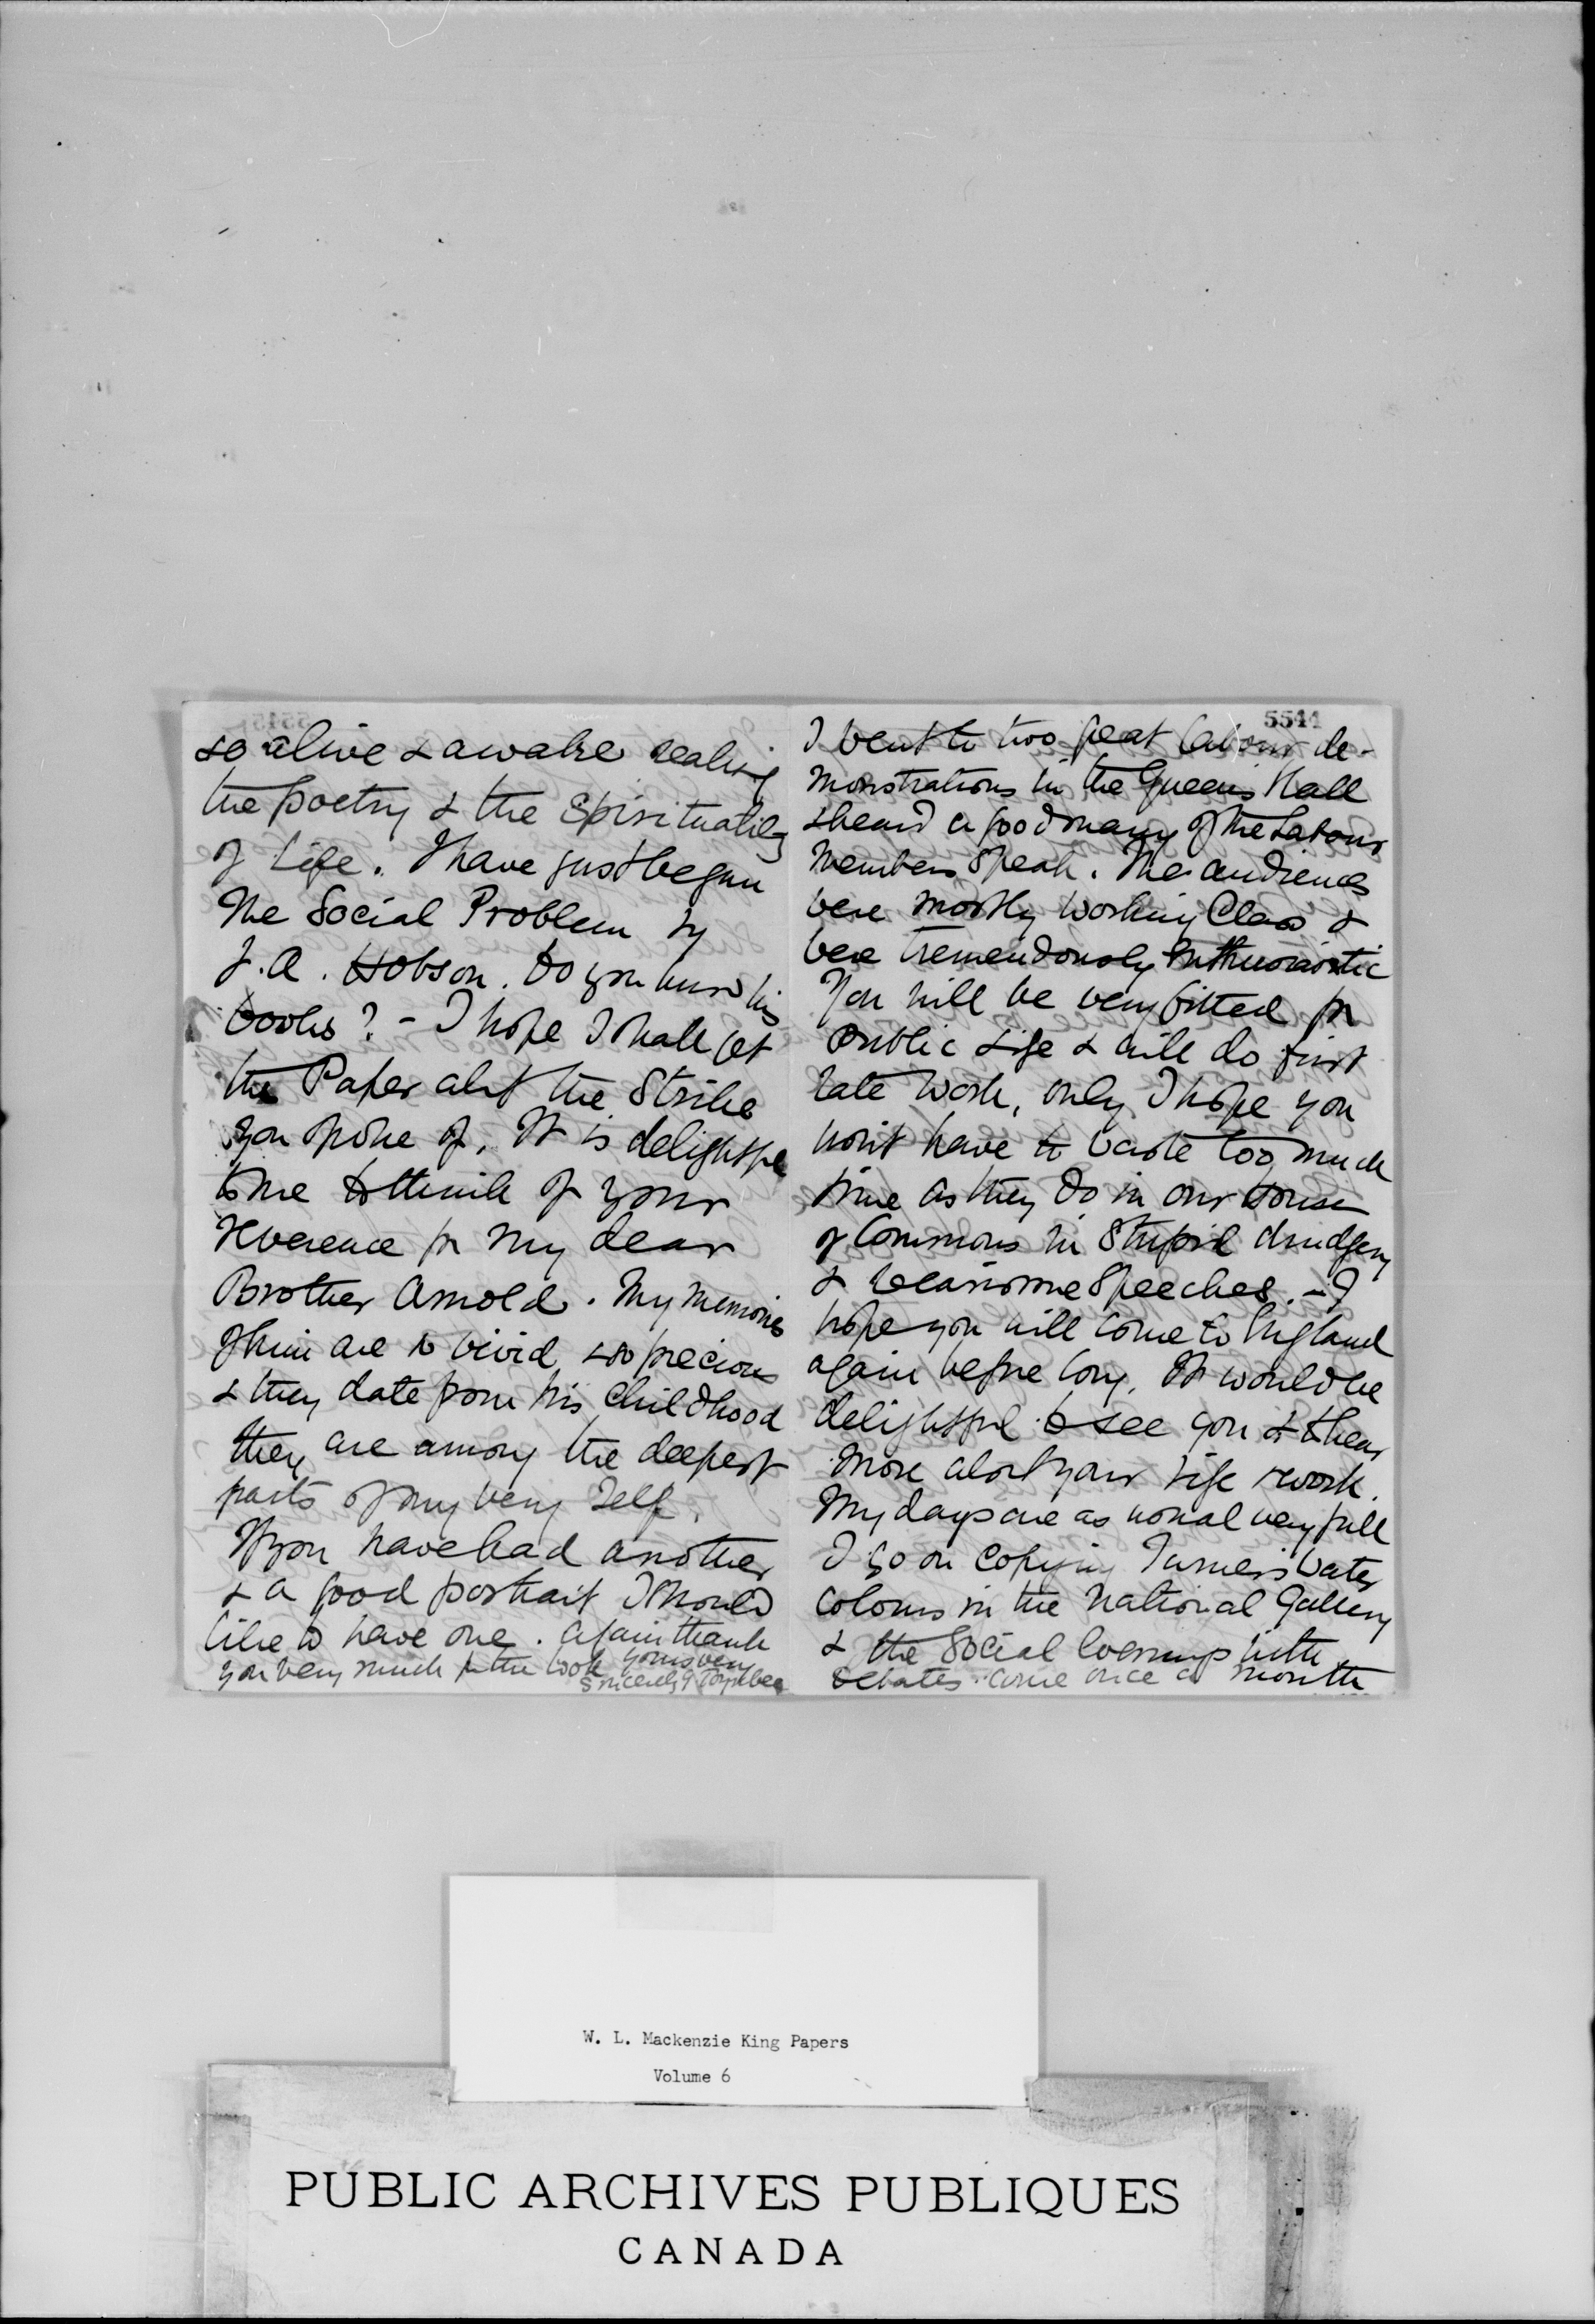 so alive & awake realising
the poetry & the Spirituality
of Life. I have just begun
The Social Problem by
J. A. Hobson. Do you know his
books? - I hope I shall get
the Paper abt the Strike
you spoke of. It is delightful
to me to think of your
reverence for my dear
Brother Arnold. My memories
of him are so vivid & so precious
& they date from his Childhood
they are among the deepest
parts of my very Self.
If you have had another
& a good portrait I should
like to have one. Again thank
you very much for the book Yours very
Sincerely G Toynbee
5544
I went to two great Labour de-
monstrations in the Queens Hall
& heard a good many of the Labour
Members Speak. The audiences
were mostly Working Class &
were tremendously Enthusiastic
You will be very fitted for
Public Life & will do first
rate work, only I hope you
won't have to waste too much
time as they do in our House
of Commons in Stupid drudgery
& wearisome Speeches. - I
hope you will come to England
again before long. It would be
delightful to see you & to hear
more about your Life & work.
My days are as usual very full
I go on Copying Turner's Water
Colours in the National Gallery
& the Social Evenings with
debates come once a month
W. L. Mackenzie King Papers
Volume 6
PUBLIC ARCHIVES PUBLIQUES
CANADA